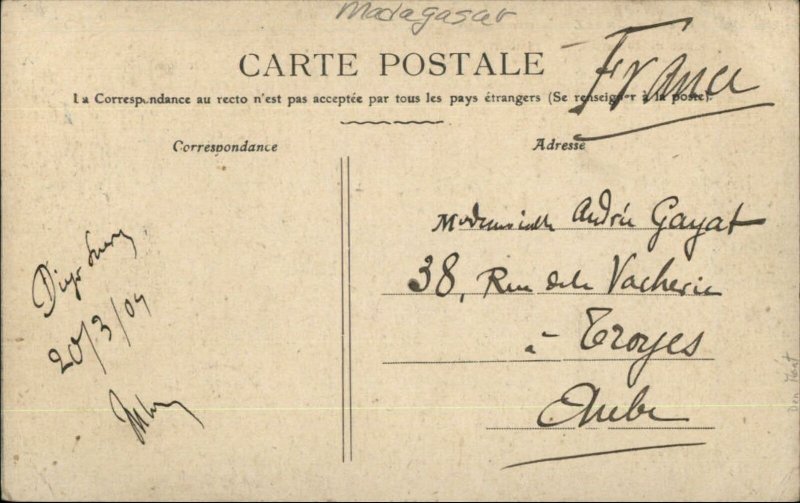 Madagascar
CARTE POSTALE
France
La Correspondance au recto n'est pas acceptée par tous les pays étrangers (Se renseigner à la poste).
Correspondance
Adresse
Diego Suarez
20/3/04
Mademoiselle Andrée Gayat
38, Rue de la Vacherie
à Troyes
Aube